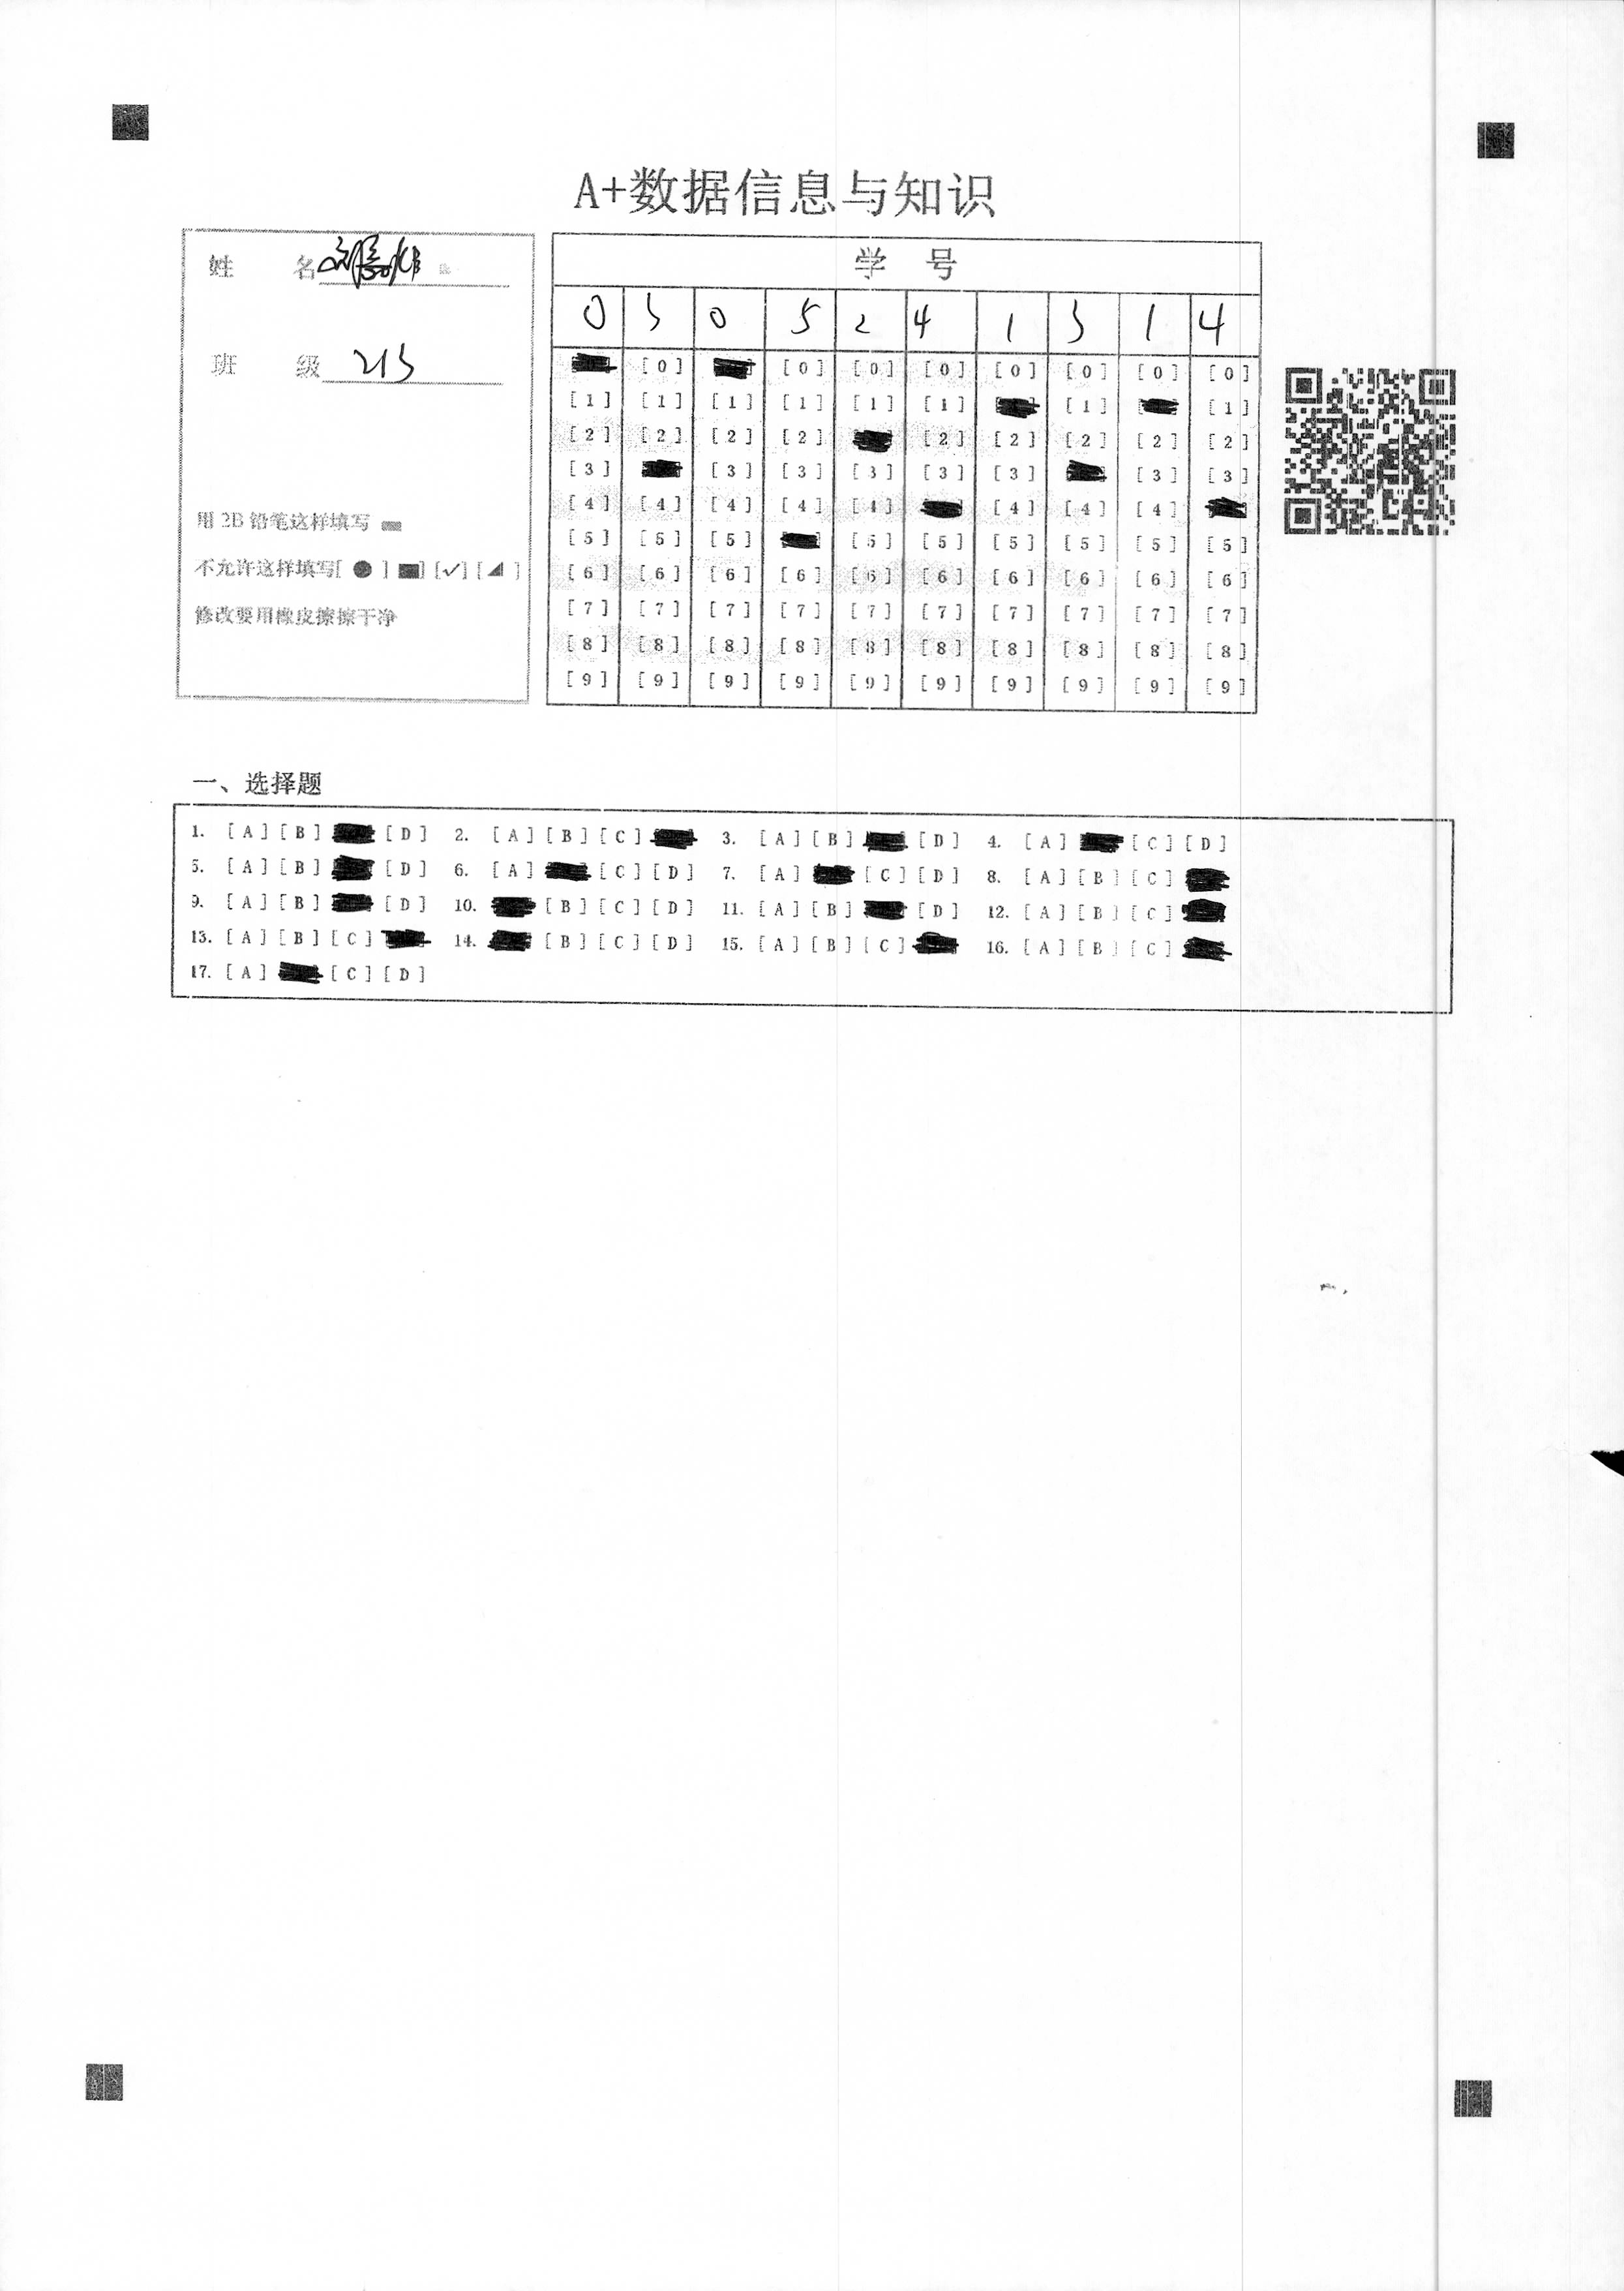 A+数据信息与知识
姓 名
班 级 213
用 2B 铅笔这样填写
不允许这样填写[ ● ] ■] [✓] [◢ ]
修改要用橡皮擦擦干净
学 号
0 3 0 5 2 4 1 3 1 4
[0] [0] [0] [0] [0] [0] [0] [0]
[1] [1] [1] [1] [1] [1] [1] [1]
[2] [2] [2] [2] [2] [2] [2] [2] [2]
[3] [3] [3] [3] [3] [3] [3] [3]
[4] [4] [4] [4] [4] [4] [4] [4]
[5] [5] [5] [5] [5] [5] [5] [5] [5]
[6] [6] [6] [6] [6] [6] [6] [6] [6] [6]
[7] [7] [7] [7] [7] [7] [7] [7] [7] [7]
[8] [8] [8] [8] [8] [8] [8] [8] [8] [8]
[9] [9] [9] [9] [9] [9] [9] [9] [9] [9]
一、选择题
1. [A] [B] [D] 2. [A] [B] [C] 3. [A] [B] [D] 4. [A] [C] [D]
5. [A] [B] [D] 6. [A] [C] [D] 7. [A] [C] [D] 8. [A] [B] [C]
9. [A] [B] [D] 10. [B] [C] [D] 11. [A] [B] [D] 12. [A] [B] [C]
13. [A] [B] [C] 14. [B] [C] [D] 15. [A] [B] [C] 16. [A] [B] [C]
17. [A] [C] [D]